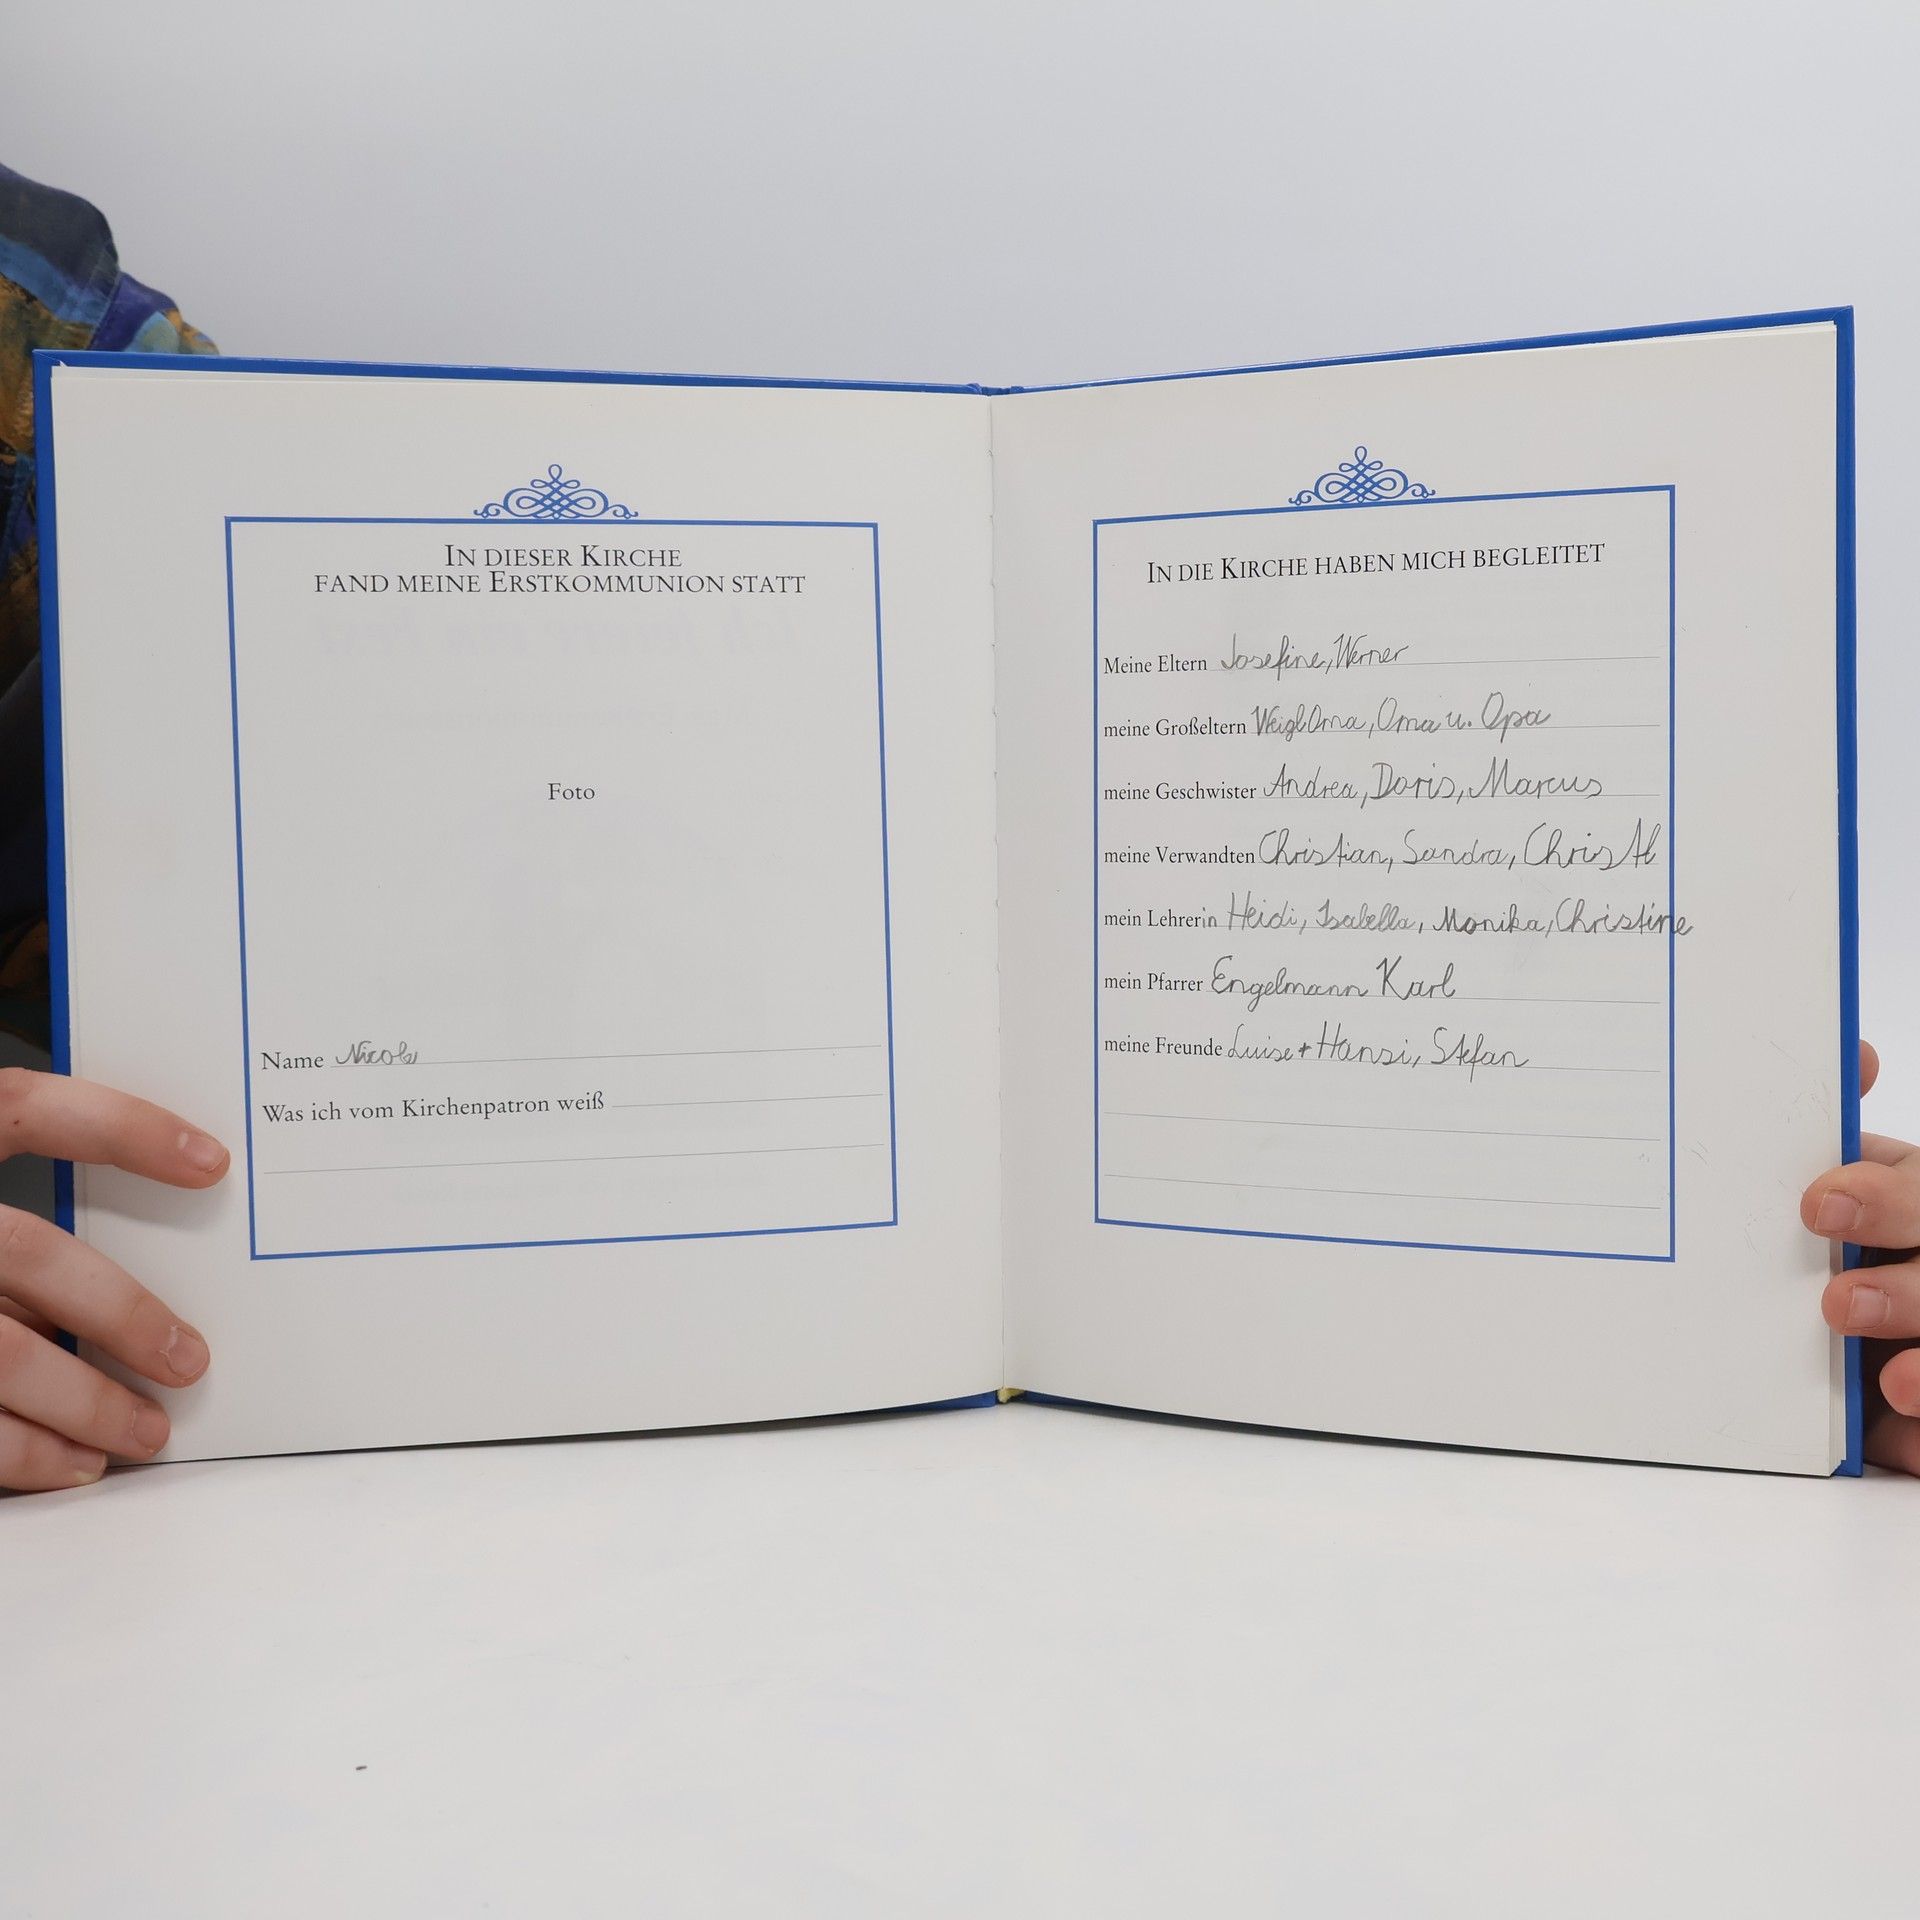 IN DIESER KIRCHE
FAND MEINE ERSTKOMMUNION STATT
Foto
Name Nicole
Was ich vom Kirchenpatron weiß
IN DIE KIRCHE HABEN MICH BEGLEITET
Meine Eltern Josefine, Werner
meine Großeltern Weigl Oma, Oma u. Opa
meine Geschwister Andrea, Doris, Marcus
meine Verwandten Christian, Sandra, Christl
mein Lehrerin Heidi, Isabella, Monika, Christine
mein Pfarrer Engelmann Karl
meine Freunde Luise + Hansi, Stefan